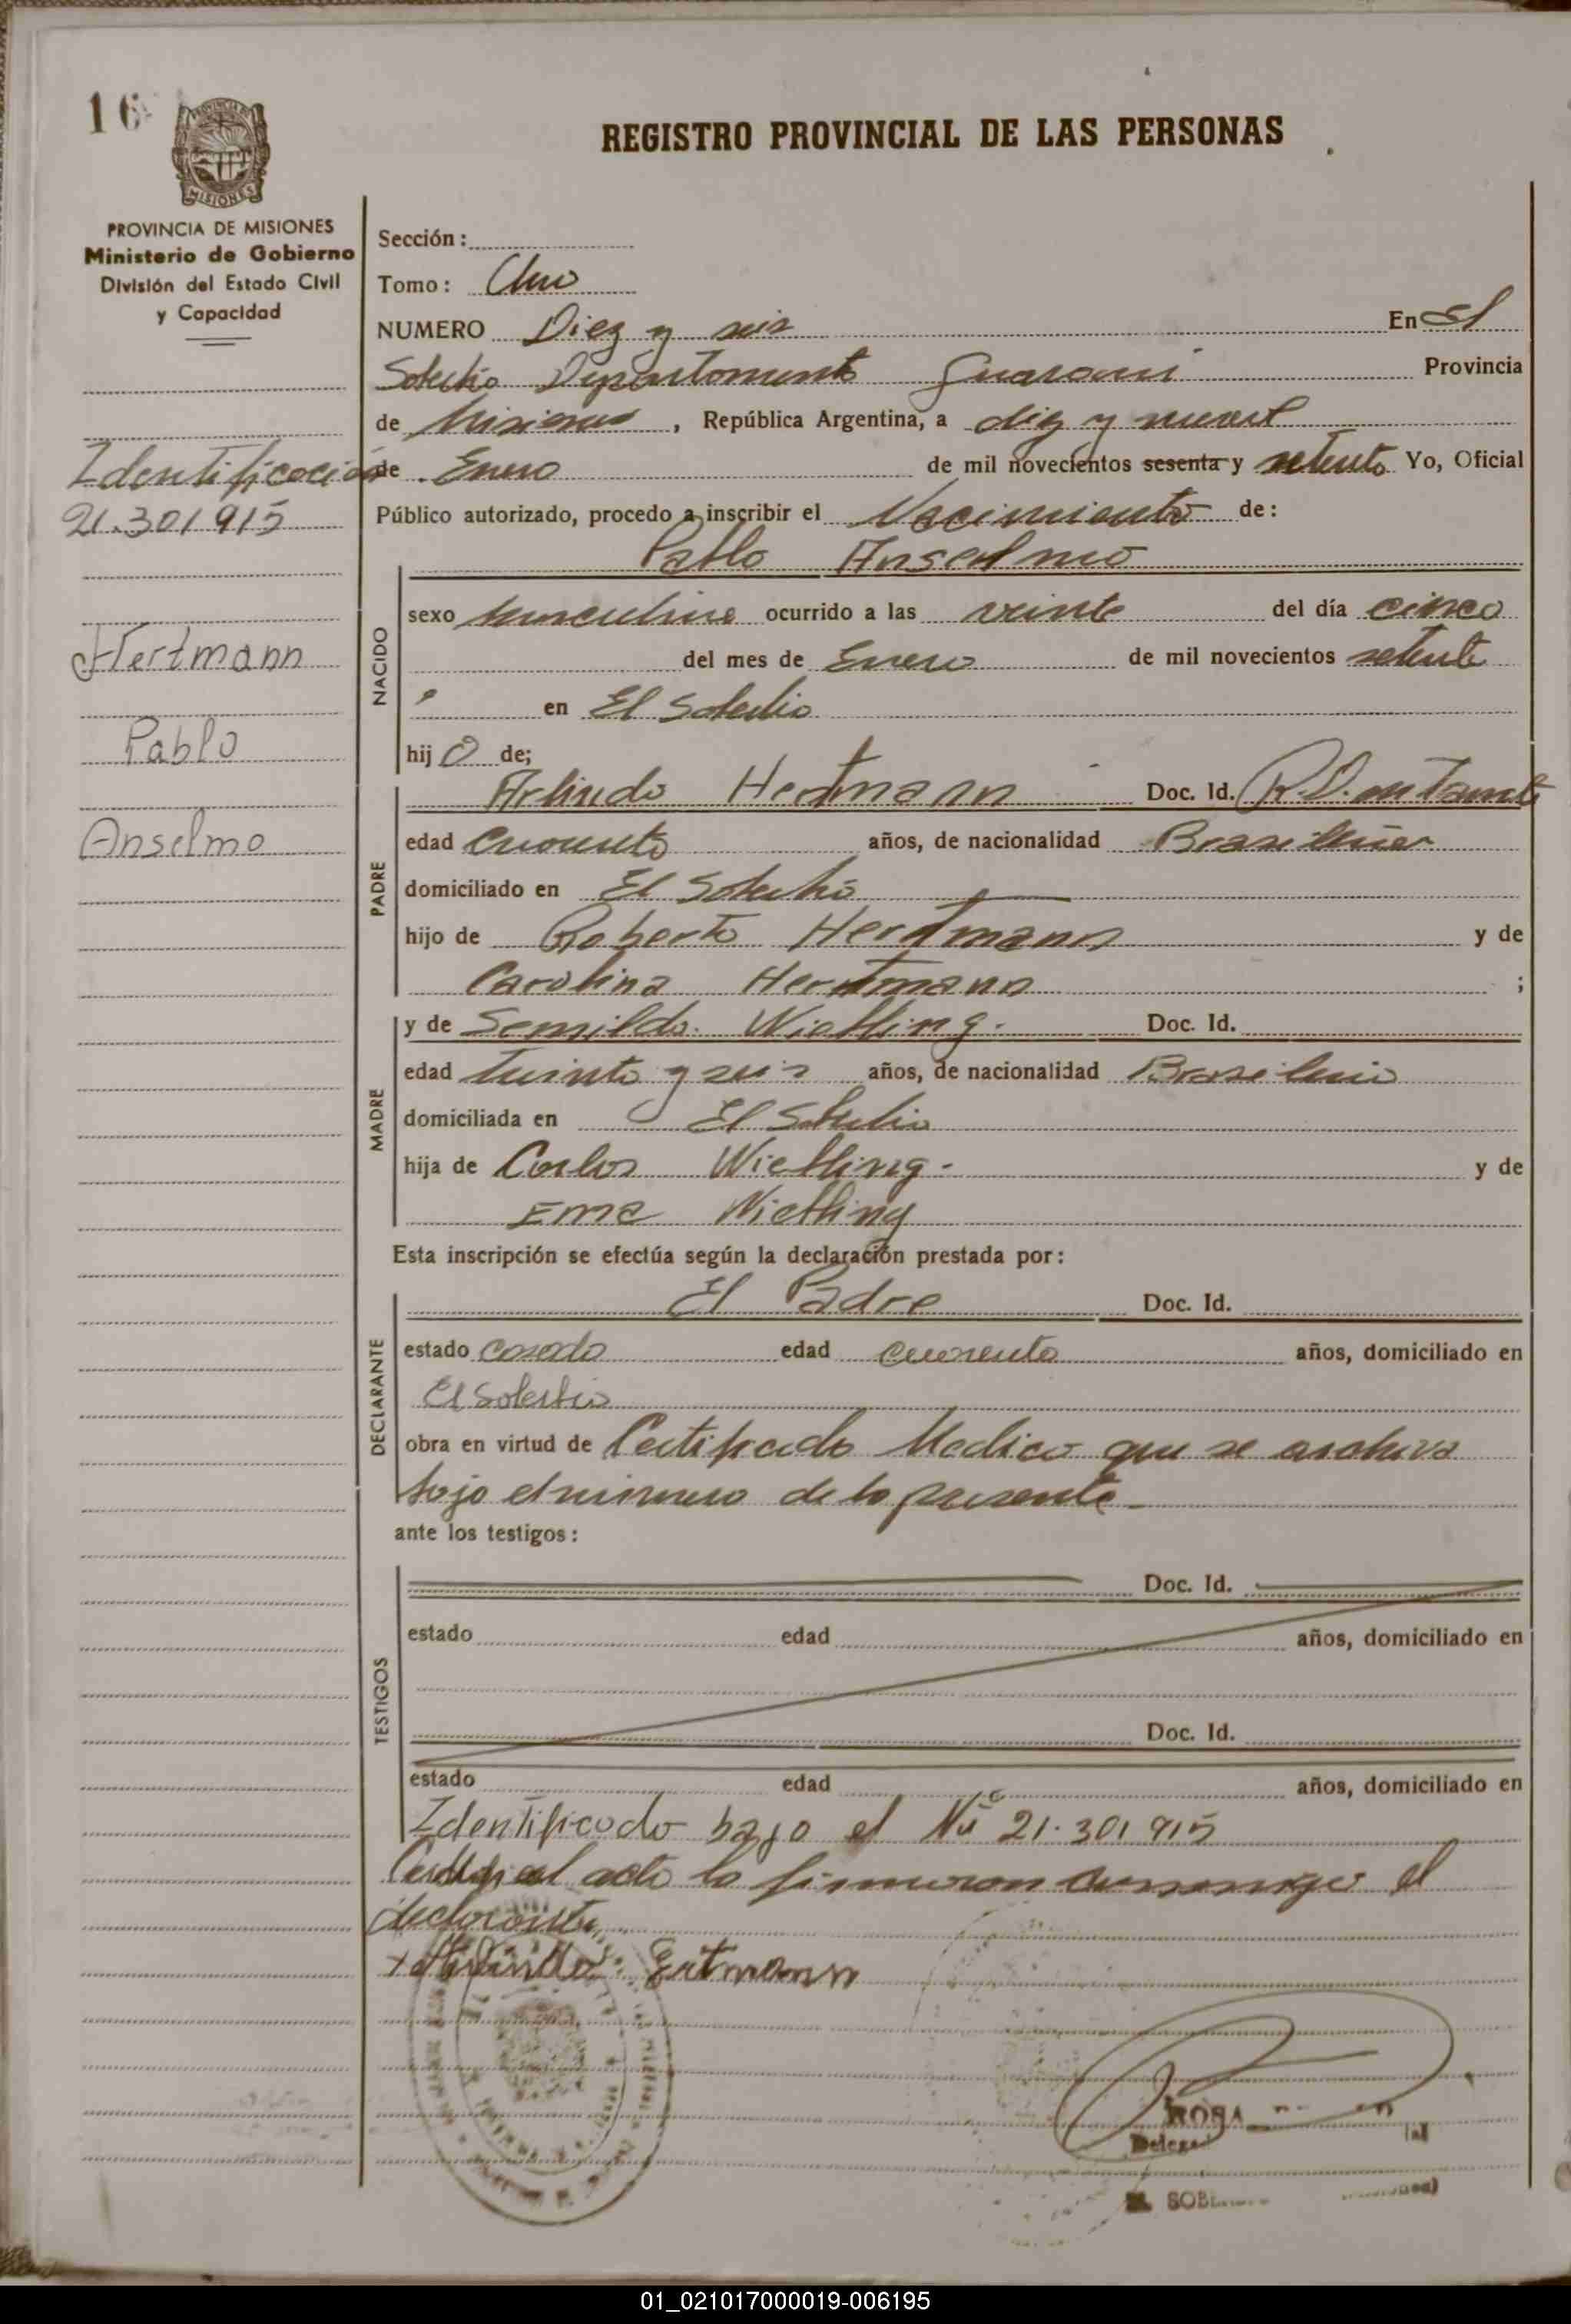 16
PROVINCIA DE MISIONES
Ministerio de Gobierno
División del Estado Civil
y Capacidad
Identificación
21.301915
Hertmann
Pablo
Anselmo
REGISTRO PROVINCIAL DE LAS PERSONAS
Sección:
Tomo: Uno
NUMERO Diez y seis En El
Soberbio Departamento Guarani Provincia
de Misiones, República Argentina, a diez y nueve
de Enero de mil novecientos sesenta y setenta Yo, Oficial
Público autorizado, procedo a inscribir el Nacimiento de:
Pablo Anselmo
NACIDO
sexo masculino ocurrido a las veinte del día cinco
del mes de Enero de mil novecientos setenta
en El Soberbio
hijo de;
PADRE
Arlindo Hertmann Doc. Id.
edad cuarenta años, de nacionalidad Brasileña
domiciliado en El Soberbio
hijo de Roberto Hertmann y de
Carolina Hertmann ;
MADRE
y de Wiebling. Doc. Id.
edad treinta y seis años, de nacionalidad Brasileña
domiciliada en El Soberbio
hija de Carlos Wiebling - y de
Ema Wiebling
Esta inscripción se efectúa según la declaración prestada por:
DECLARANTE
El Padre Doc. Id.
estado casado edad cuarenta años, domiciliado en
El Soberbio
obra en virtud de Certificado Medico que se archiva
bajo el numero de la presente -
ante los testigos:
TESTIGOS
Doc. Id.
estado edad años, domiciliado en
Doc. Id.
estado edad años, domiciliado en
Identificado bajo el Nº 21.301 915
acto lo firmaron conmigo el
declarante
x Arlindo Ertmann
ROSA
01_021017000019-006195